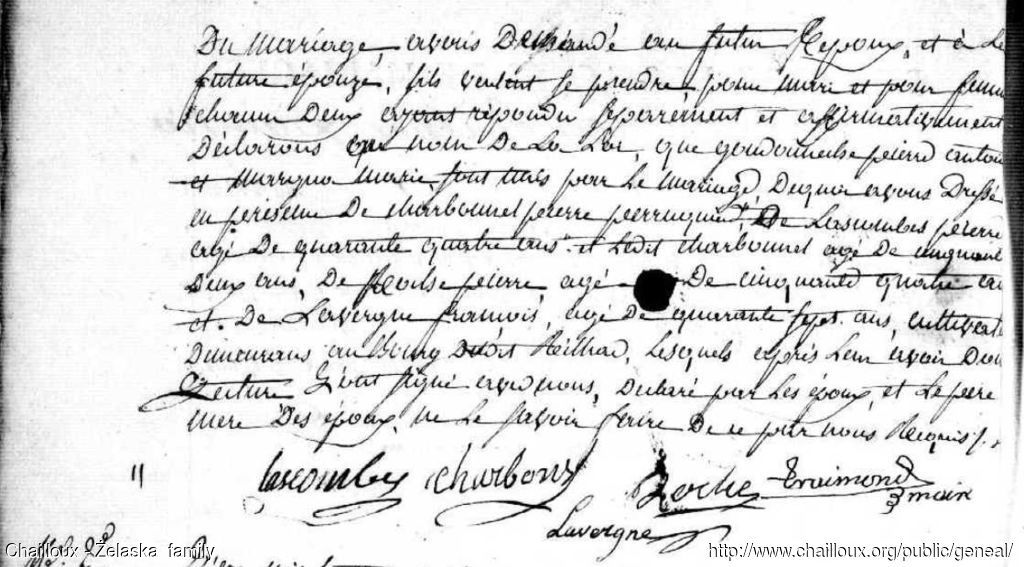 Du mariage, avons Demandé au futur Repoux, et à La
future épouze, sils veulent se prendre pour mari et pour femme
chacun Deux ayant répondu séparément et affirmativement
Déclarons au nom De La Loi, que goudonneche pierre antoine
et Margna marie, sont unis par Le mariage, De quoi avons Dressé
en présence De charbonnel pierre perruquier, De Lascombes pierre
agé De quarante quatre ans et Ledit charbonnel agé De cinquante
Deux ans, De Roche pierre agé De cinquante quatre ans
et De Lavergne francois, agé De quarante sept ans, cultivateurs
Demeurans au Bourg Dudit Reilhac, Lesquels après Leur avoir Donné
Lecture Géont signé avec nous, Declaré par Les époux, et Le père
mere Des époux, ne Le savoir faire De ce par nous Requis ./.
lascombes charbonel Roche Traimond
maire
Lavergne
Chailloux - Želaska family
http://www.chailloux.org/public/geneal/